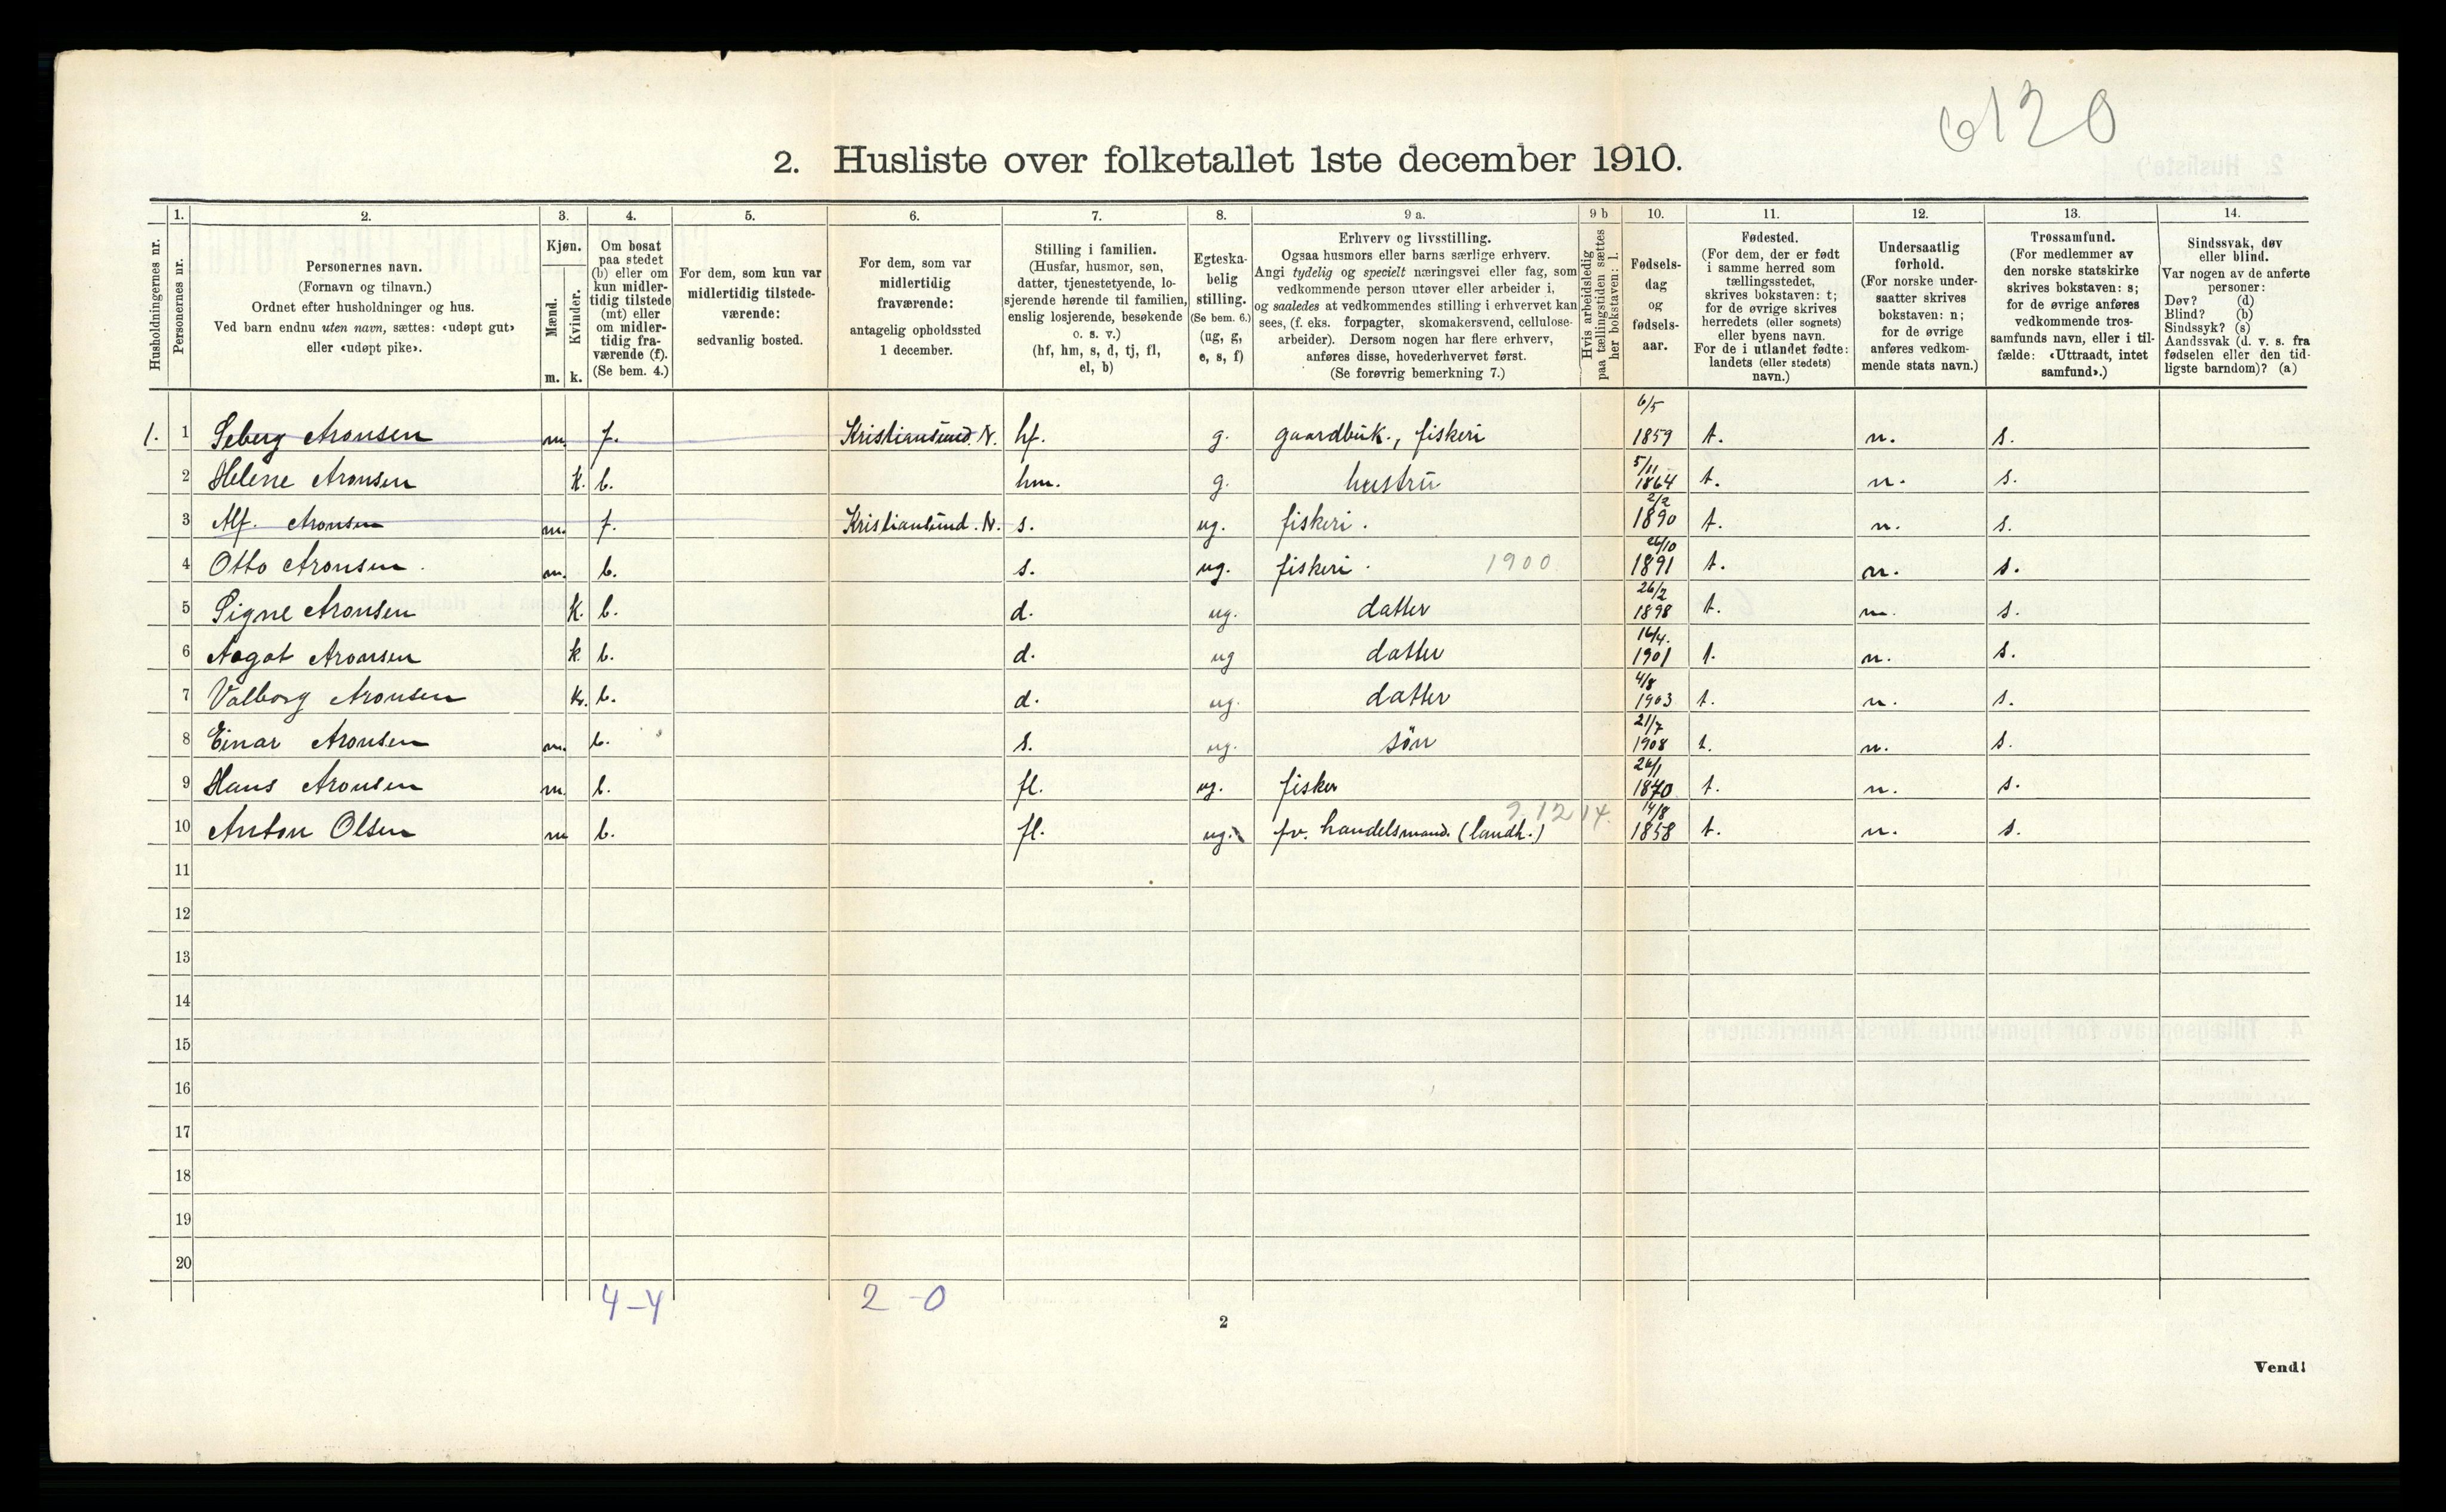 6120
2. Husliste over folketallet 1ste december 1910.
Husholdningernes nr.
1.
Personernes nr.
2.
Personernes navn.
(Fornavn og tilnavn.)
Ordnet efter husholdninger og hus.
Ved barn endnu uten navn, sættes: «udøpt gut»
eller «udøpt pike».
3.
Kjøn.
Mænd.
m.
Kvinder.
k.
4.
Om bosat
paa stedet
(b) eller om
kun midler-
tidig tilstede
(mt) eller
om midler-
tidig fra-
værende (f).
(Se bem. 4.)
5.
For dem, som kun var
midlertidig tilstede-
værende:
sedvanlig bosted.
6.
For dem, som var
midlertidig
fraværende:
antagelig opholdssted
1 december.
7.
Stilling i familien.
(Husfar, husmor, søn,
datter, tjenestetyende, lo-
sjerende hørende til familien,
enslig losjerende, besøkende
o. s. v.)
(hf, hm, s, d, tj, fl,
el, b)
8.
Egteska-
belig
stilling.
(Se bem. 6.)
(ug, g,
e, s, f)
9 a.
Erhverv og livsstilling.
Ogsaa husmors eller barns særlige erhverv.
Angi tydelig og specielt næringsvei eller fag, som
vedkommende person utøver eller arbeider i,
og saaledes at vedkommendes stilling i erhvervet kan
sees, (f. eks. forpagter, skomakersvend, cellulose-
arbeider). Dersom nogen har flere erhverv,
anføres disse, hovederhvervet først.
(Se forøvrig bemerkning 7.)
9 b
Hvis arbeidsledig
paa tællingstiden sættes
her bokstaven: l.
10.
Fødsels-
dag
og
fødsels-
aar.
11.
Fødested.
(For dem, der er født
i samme herred som
tællingsstedet,
skrives bokstaven: t;
for de øvrige skrives
herredets (eller sognets)
eller byens navn.
For de i utlandet fødte:
landets (eller stedets)
navn.)
12.
Undersaatlig
forhold.
(For norske under-
saatter skrives
bokstaven: n;
for de øvrige
anføres vedkom-
mende stats navn.)
13.
Trossamfund.
(For medlemmer av
den norske statskirke
skrives bokstaven: s;
for de øvrige anføres
vedkommende tros-
samfunds navn, eller i til-
fælde: «Uttraadt, intet
samfund».)
14.
Sindssvak, døv
eller blind.
Var nogen av de anførte
personer:
Døv? (d)
Blind? (b)
Sindssyk? (s)
Aandssvak (d. v. s. fra
fødselen eller den tid-
ligste barndom)? (a)
1. 1 Seberg Aronsen m. f. Kristiansund. N. hf. g. gaardbruk., fiskeri 6/5 1859 t. n. s.
2 Helene Aronsen k. b. hm. g. hustru 5/11 1864 t. n. s.
3 Alf. Aronsen m. f. Kristiansund. N. s. ug. fiskeri. 2/2 1890 t. n. s.
4 Otto Aronsen. m. b. s. ug. fiskeri. 1900 26/10 1891 t. n. s.
5 Signe Aronsen k. b. d. ug. datter 26/2 1898 t. n. s.
6 Aagot Aronsen k. b. d. ug datter 16/4. 1901 t. n. s.
7 Valborg Aronsen k. b. d. ug. datter 4/8 1903 t. n. s.
8 Einar Aronsen m. b. s. ug. søn 21/7 1908 t. n. s.
9 Hans Aronsen m. b. fl. ug. fisker 26/1 1870. t. n. s.
10 Anton Olsen m b. fl. ug. fv. handelsmand. (landh.) 14/8 1858 t. n. s.
11
12
13
14
15
16
17
18
19
20
4-4 2-0
2
Vend!